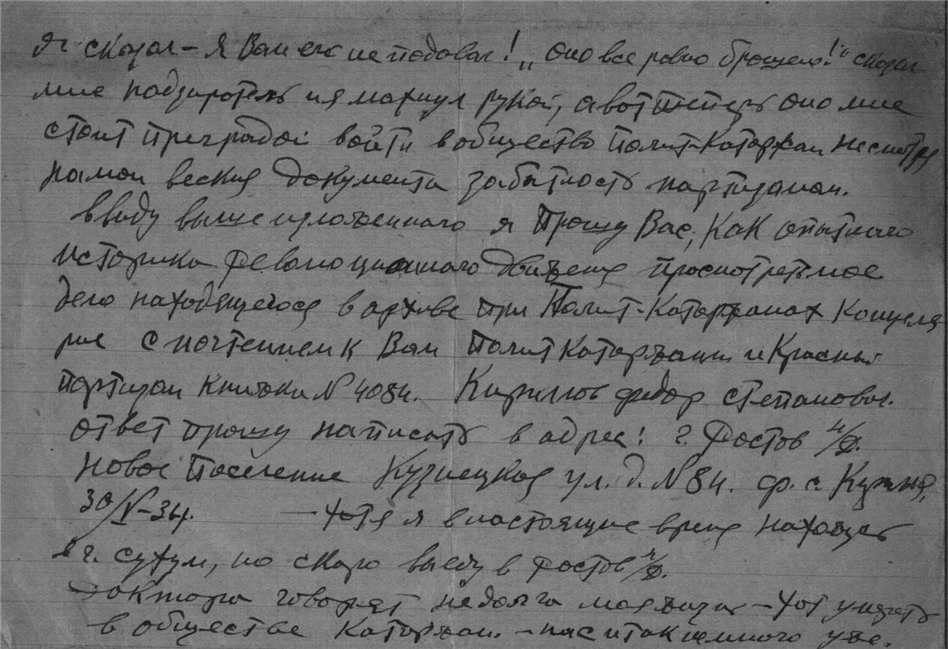 я сказал – я Вам его не подавал! „оно все ровно брошено!" сказал
мне надзиратель и я махнул рукой, а вот теперь оно мне
стоит преградой войти в общество Полит-Каторжан несмотря
на мои веския документы забытность партизанам.
ввиду выше изложенного я Прошу Вас, Как опытного
историка революционного движения просмотреть мое
дело находящегося в архиве при Полит-Каторжанах Концеля
рие с почтением к Вам Полит Каторжанин и Красный
партизан Книжки № 4084. Кириллов Федор Степанович.
ответ прошу написать в адрес: г. Ростов н/Д.
Новое Поселение Кузнецкая ул. д. № 84. Ф. С.
30/IV-34. – Хотя я в настоящие время нахожусь
в г. Сухум, но скоро выеду в Ростов н/Д.
Доктора говорят недолга моя жизнь – хот умереть
в обществе Каторжан. – нас и так немного уже.